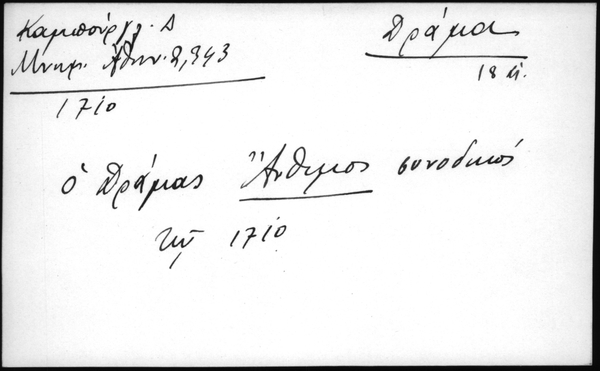 Καμπούργλ. Δ
Μνημ. Ἀθην. 2, 343
1710
Δράμα
18 αἰ.
ὁ Δράμας Ἄνθιμος συνοδικός
τῷ 1710